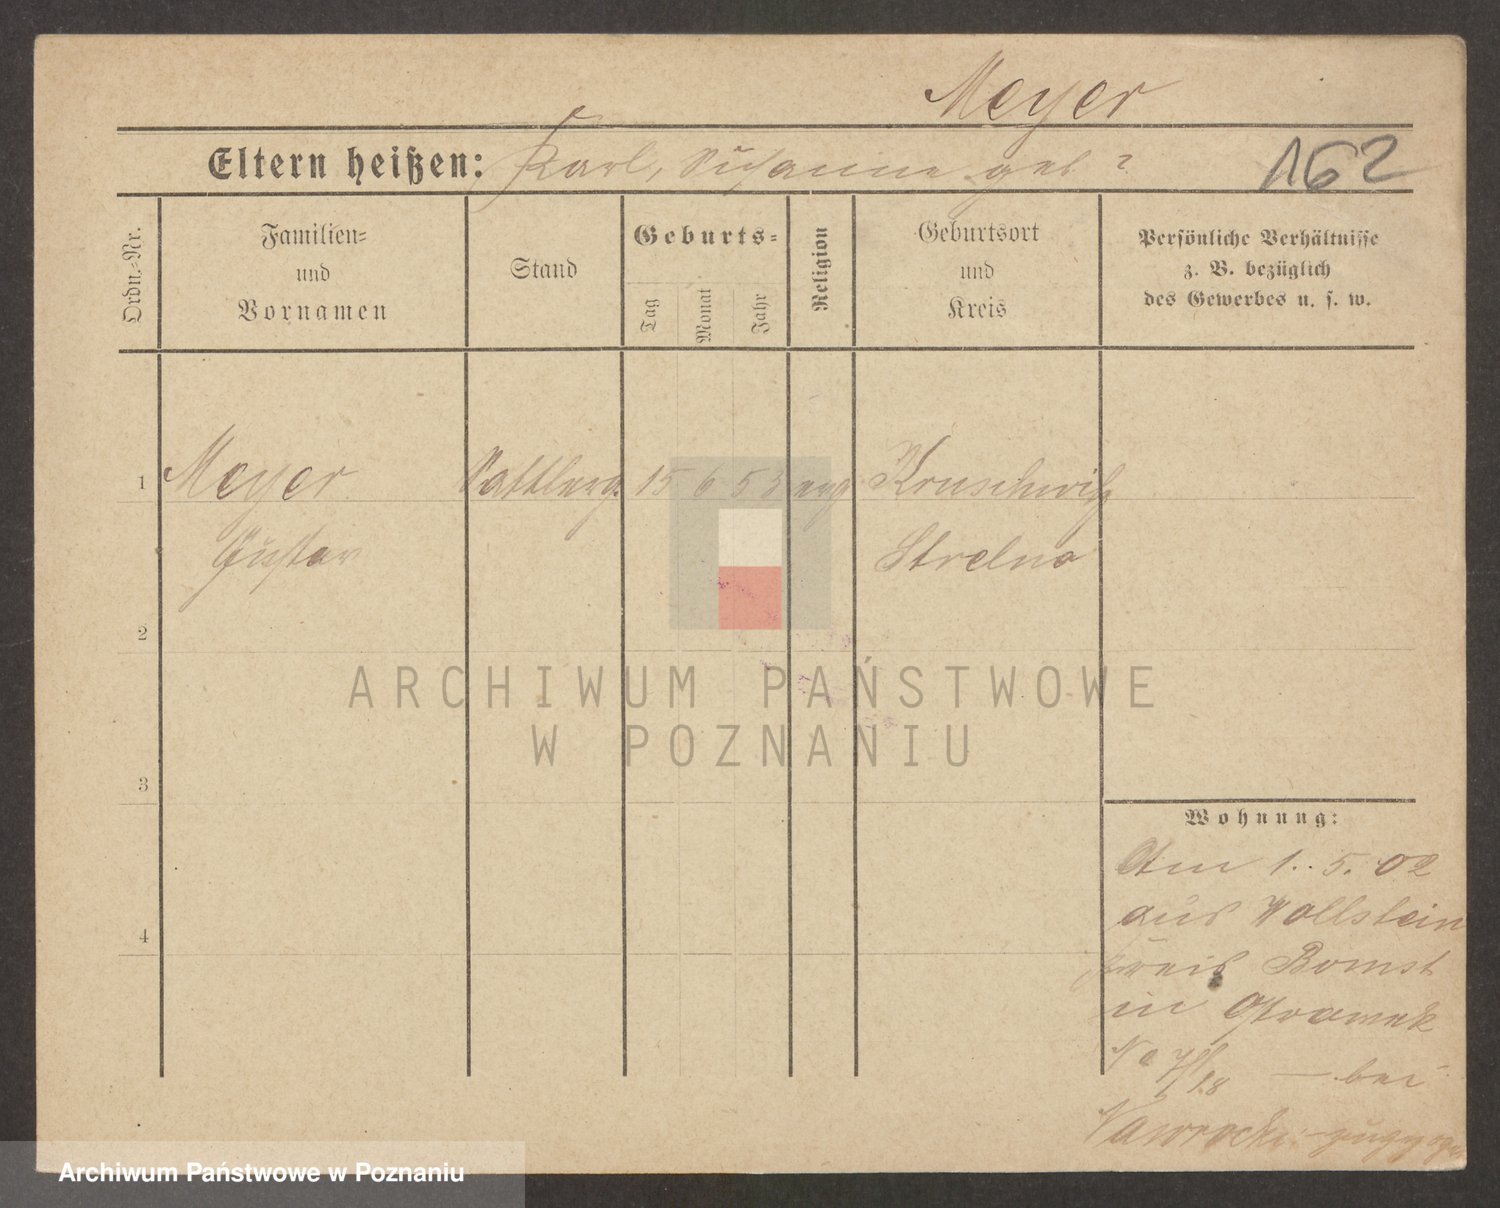 Meyer
Eltern heißen: Karl, Susanne geb ?
162
Ordn.-Nr.
Familien-
und
Vornamen
Stand
Geburts-
Tag
Monat
Jahr
Religion
Geburtsort
und
Kreis
Persönliche Verhältnisse
z. B. bezüglich
des Gewerbes u. s. w.
1 Meyer Sattlerg. 15 6 53 evg Kruschwitz
Gustav Strelno
2
ARCHIWUM PAŃSTWOWE
W POZNANIU
3
Wohnung:
Am 1. 5. 02
aus Wollstein
4
Kreis Bomst
in
No bei
Nawrocki
Archiwum Państwowe w Poznaniu